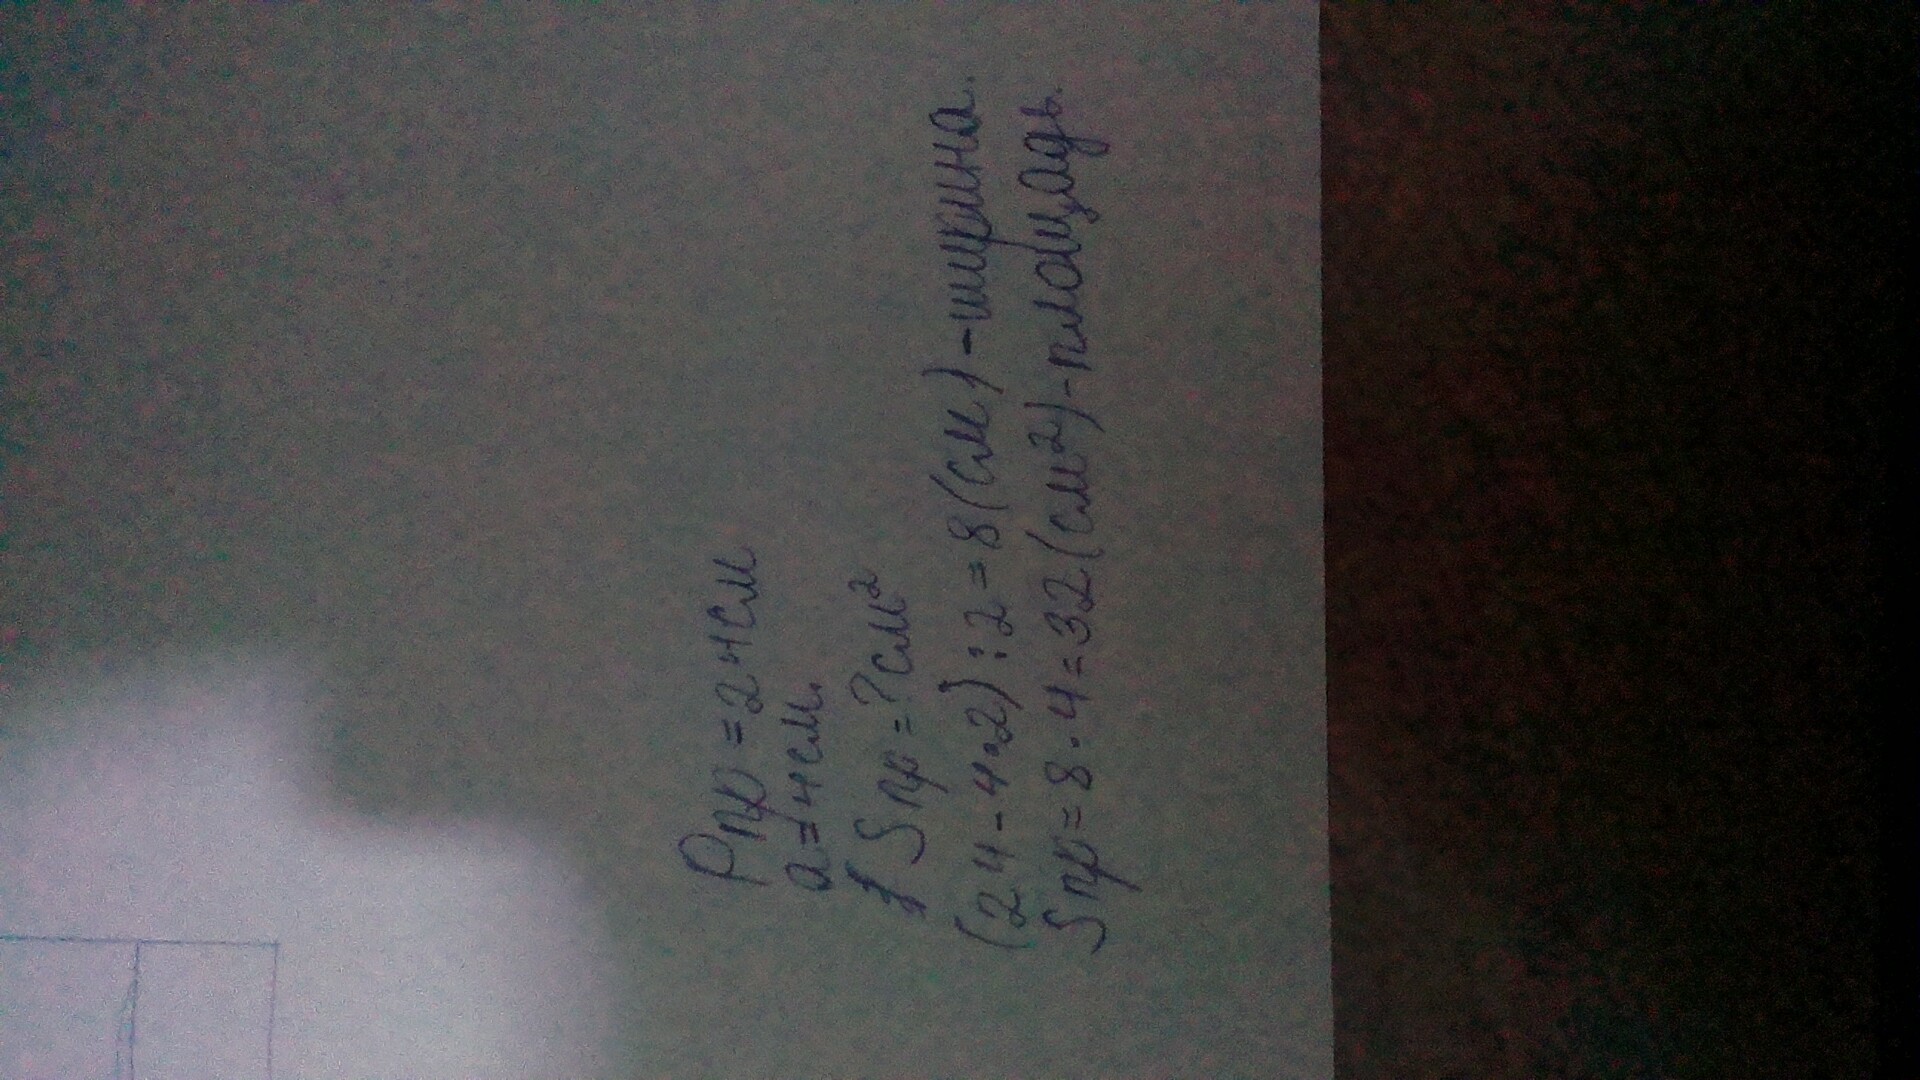 Pпр = 24см
a = 4см.
Sпр = ? см²
(24 - 4·2) : 2 = 8 (см) - ширина.
Sпр = 8 · 4 = 32 (см²) - площадь.